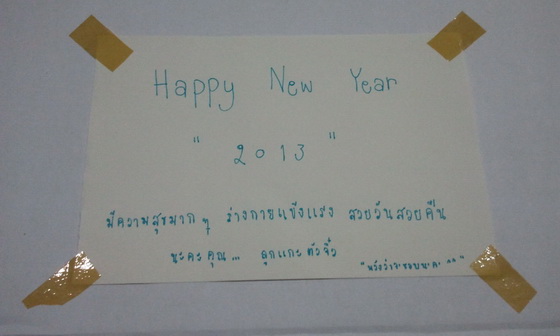 Happy New Year
" 2013 "
มีความสุขมาก ๆ ร่างกายแข็งแรง สวยวันสวยคืน
นะคะคุณ... ลูกแกะตัวจิ๋ว
"หวังว่าจะชอบนะคะ ^^"